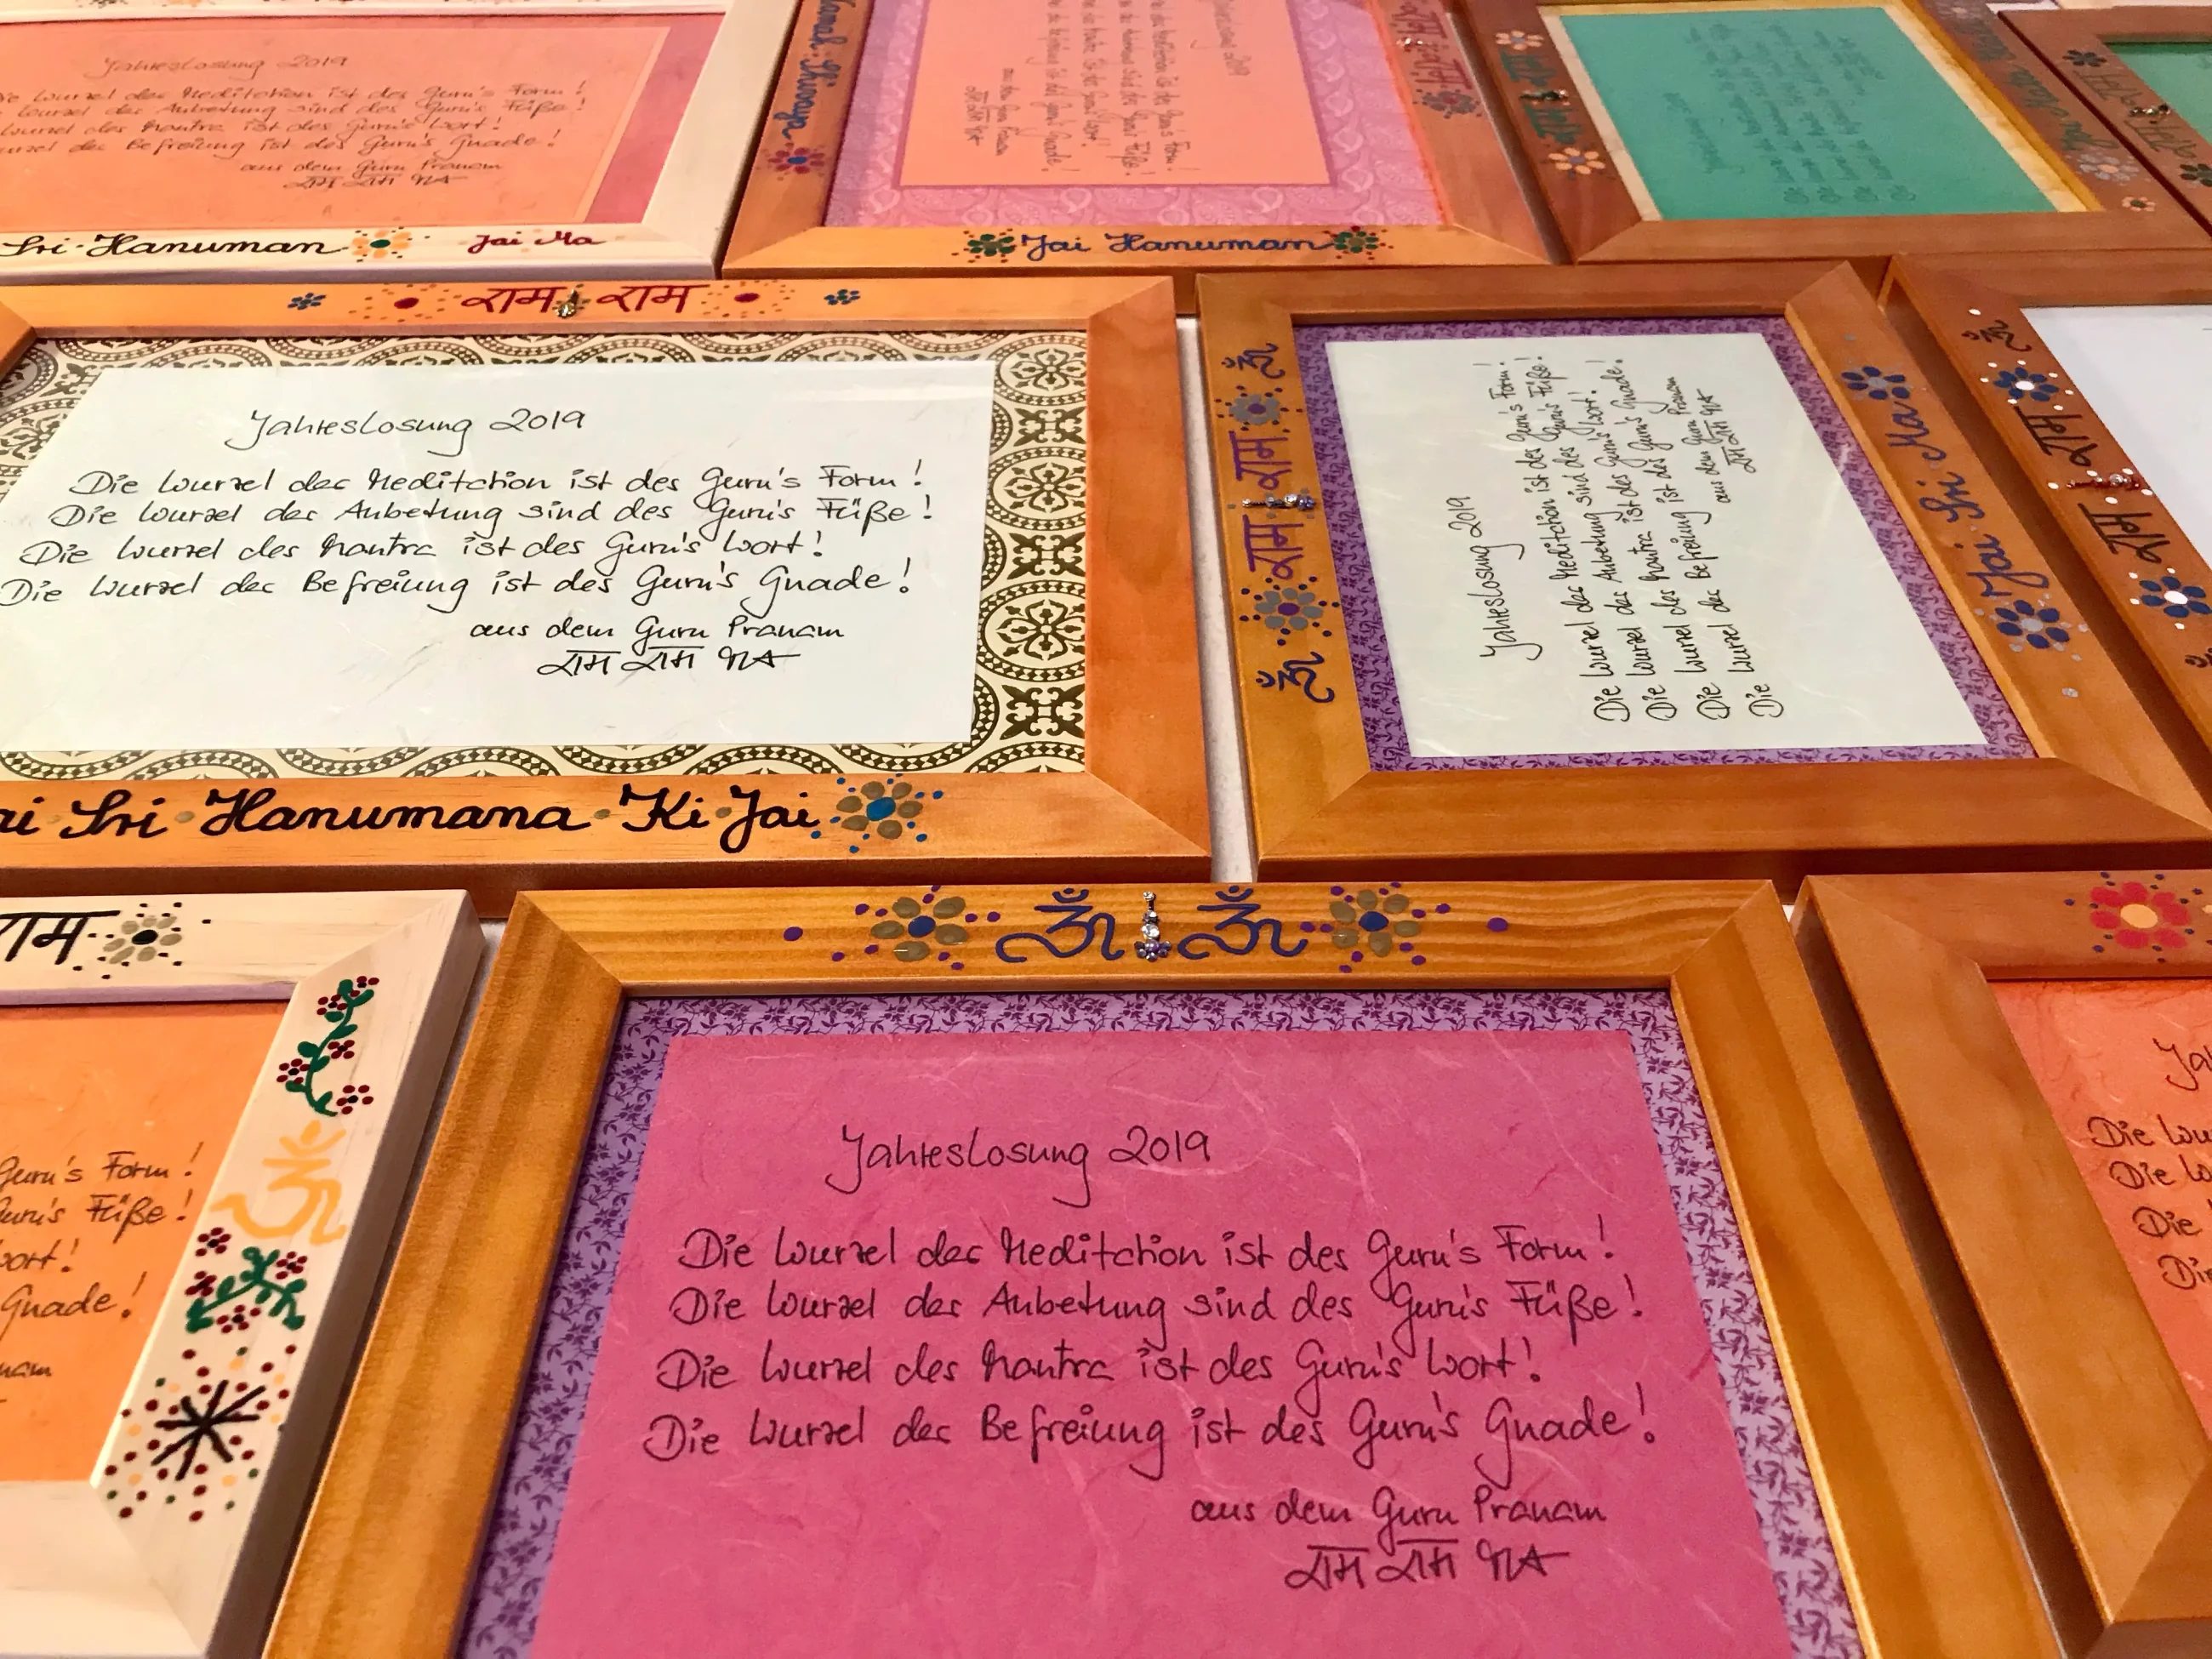 Jahreslosung 2019
Die Wurzel der Meditation ist des Guru's Form!
Wurzel der Anbetung sind des Guru's Füße!
Wurzel des Mantra ist des Guru's Wort!
der Befreiung ist des Guru's Gnade!
aus dem Guru Pranam
राम राम
Sri Hanuman Jai Ma
Namah Shivaya
Jahreslosung 2019
aus dem Guru Pranam
राम राम
Jai Hanuman
राम राम
Jahreslosung 2019
Die Wurzel der Meditation ist des Guru's Form!
Die Wurzel der Anbetung sind des Guru's Füße!
Die Wurzel des Mantra ist des Guru's Wort!
Die Wurzel der Befreiung ist des Guru's Gnade!
aus dem Guru Pranam
राम राम
Sri Hanumana Ki Jai
ॐ राम राम ॐ
Jahreslosung 2019
Die Wurzel der Meditation ist des Guru's Form!
Die Wurzel der Anbetung sind des Guru's Füße!
Die Wurzel des Mantra ist des Guru's Wort!
Die Wurzel der Befreiung ist des Guru's Gnade!
aus dem Guru Pranam
राम राम
Jai Sri Ma
राम राम ॐ
राम
Guru's Form!
Guru's Füße!
Wort!
Gnade!
ॐ
ॐ ॐ
Jahreslosung 2019
Die Wurzel der Meditation ist des Guru's Form!
Die Wurzel der Anbetung sind des Guru's Füße!
Die Wurzel des Mantra ist des Guru's Wort!
Die Wurzel der Befreiung ist des Guru's Gnade!
aus dem Guru Pranam
राम राम
Die
Die
Die
Die